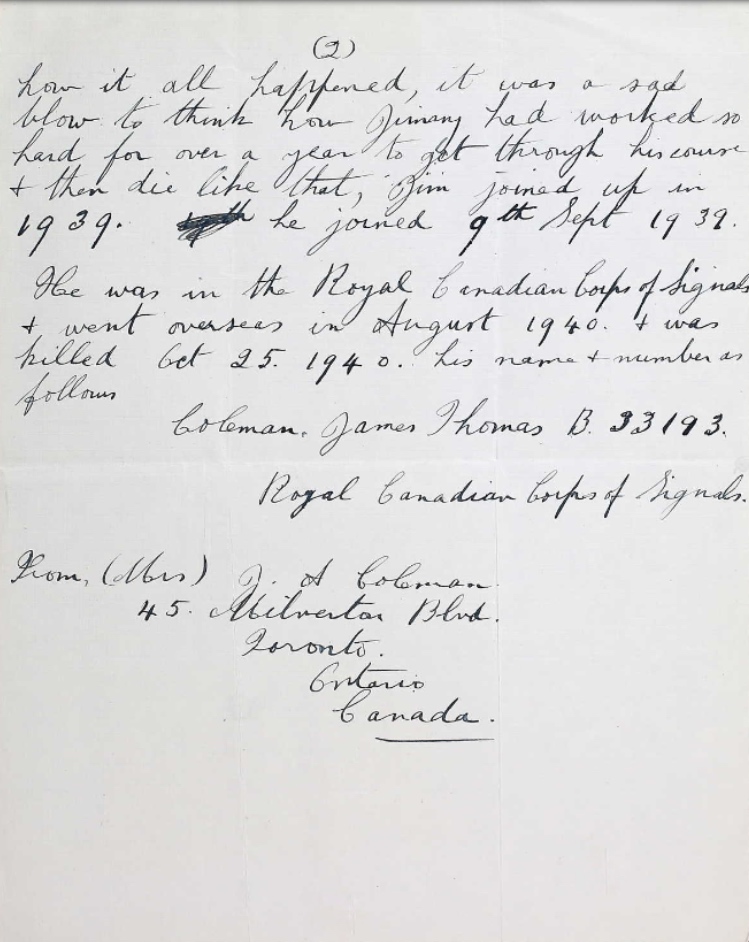 (2)
how it all happened, it was a sad
blow to think how Jimmy had worked so
hard for over a year to get through his course
+ then die like that, Jim joined up in
1939. he joined 9th Sept 1939.
He was in the Royal Canadian Corps of Signals
+ went overseas in August 1940. + was
killed Oct 25. 1940. his name + number as
follows
Coleman. James Thomas B. 33193.
Royal Canadian Corps of Signals.
From, (Mrs) J. A Coleman.
45. Milverton Blvd.
Toronto.
Ontario
Canada.